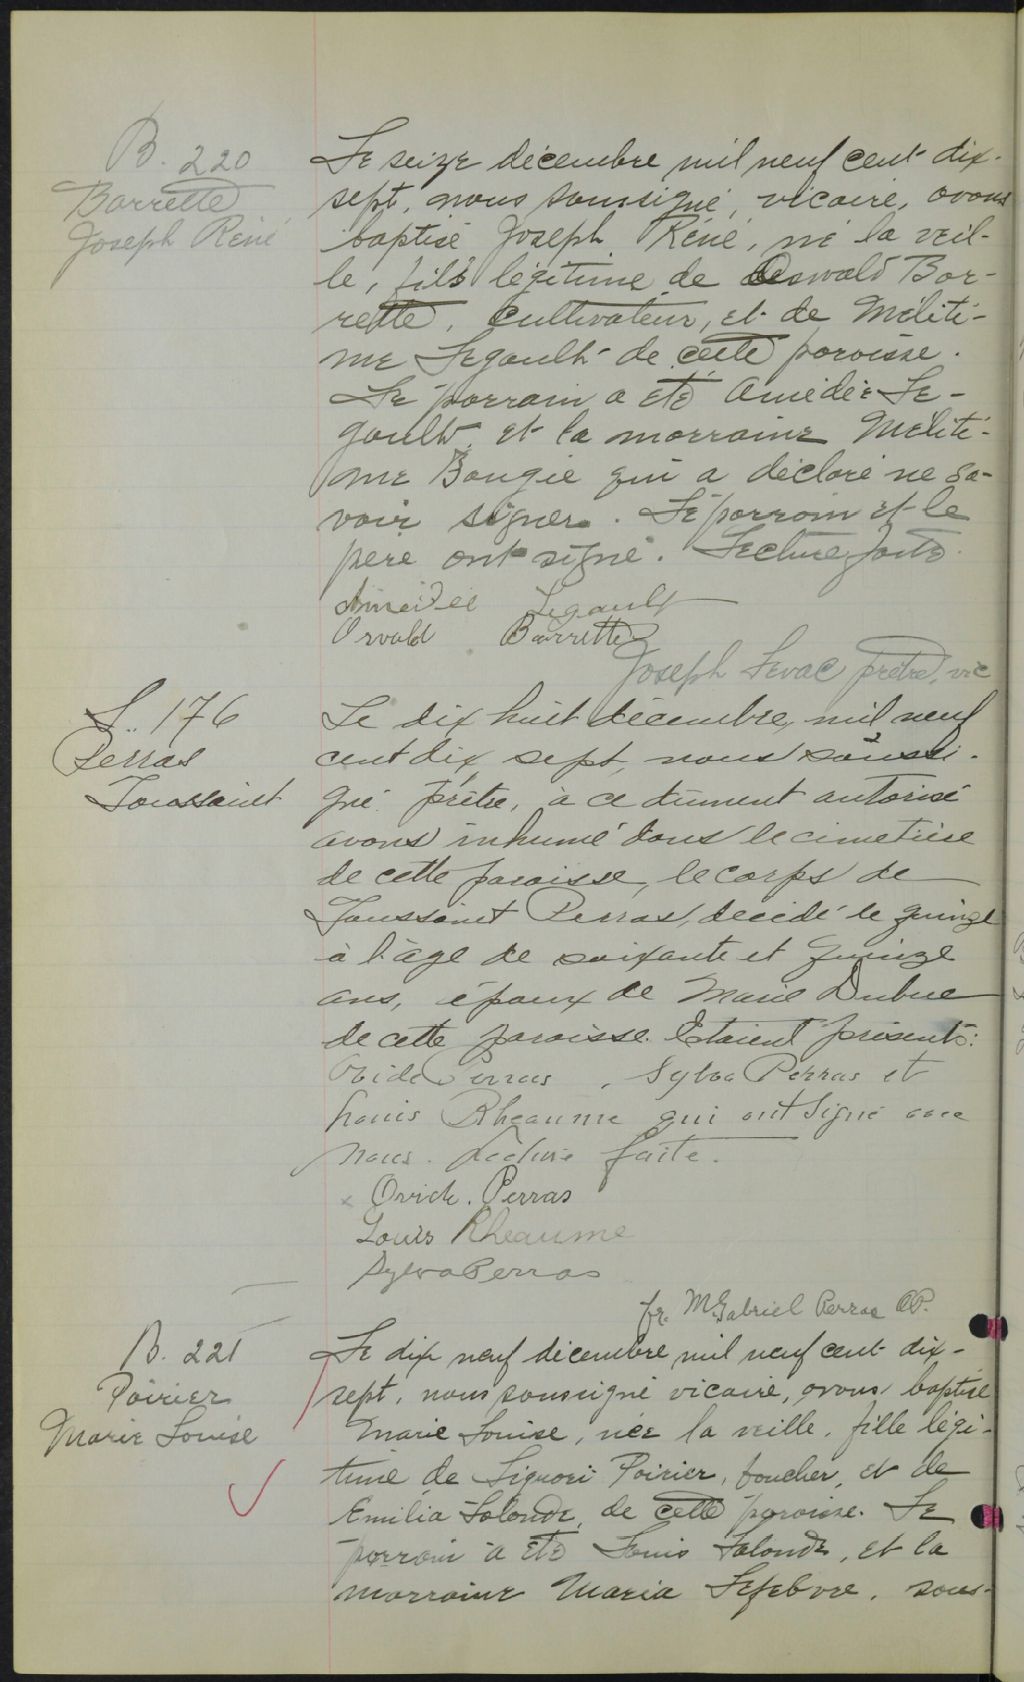 B. 220
Barrette
Joseph René
Le seize décembre mil neuf cent dix-
sept, nous soussigné, vicaire, avons
baptisé Joseph René, né la veil-
le, fils légitime de Oswald Bar-
rette, cultivateur, et de Méliti-
me Legault de cette paroisse.
Le parrain a été Amédée Le-
gault et la marraine Méliti-
me Bougie qui a déclaré ne sa-
voir signer. Le parrain et le
père ont signé. Lecture faite.
Amédée Legault
Osvald Barrette
Joseph Levac prêtre, vic
S. 176
Perras
Toussaint
Le dix huit décembre, mil neuf
cent dix sept, nous soussi-
gné prêtre, à ce dûment autorisé
avons inhumé dans le cimetière
de cette paroisse, le corps de
Toussaint Perras, décédé le quinze
à l'âge de soixante et quinze
ans, époux de Marie Dubuc
de cette paroisse. Etaient présents:
Ovide Perras, Sylva Perras et
Louis Rheaume qui ont signé avec
nous. Lecture faite.
x Ovide. Perras
Louis Rheaume
Sylva Perras
fr. M. Gabriel Perras O.P.
B. 221
Poirier
Marie Louise
Le dix neuf décembre mil neuf cent dix-
sept, nous soussigné vicaire, avons baptisé
Marie Louise, née la veille, fille légi-
time de Liguori Poirier, boucher, et de
Emilia Lalonde, de cette paroisse. Le
parrain a été Louis Lalonde, et la
marraine Maria Lefebvre, sous-